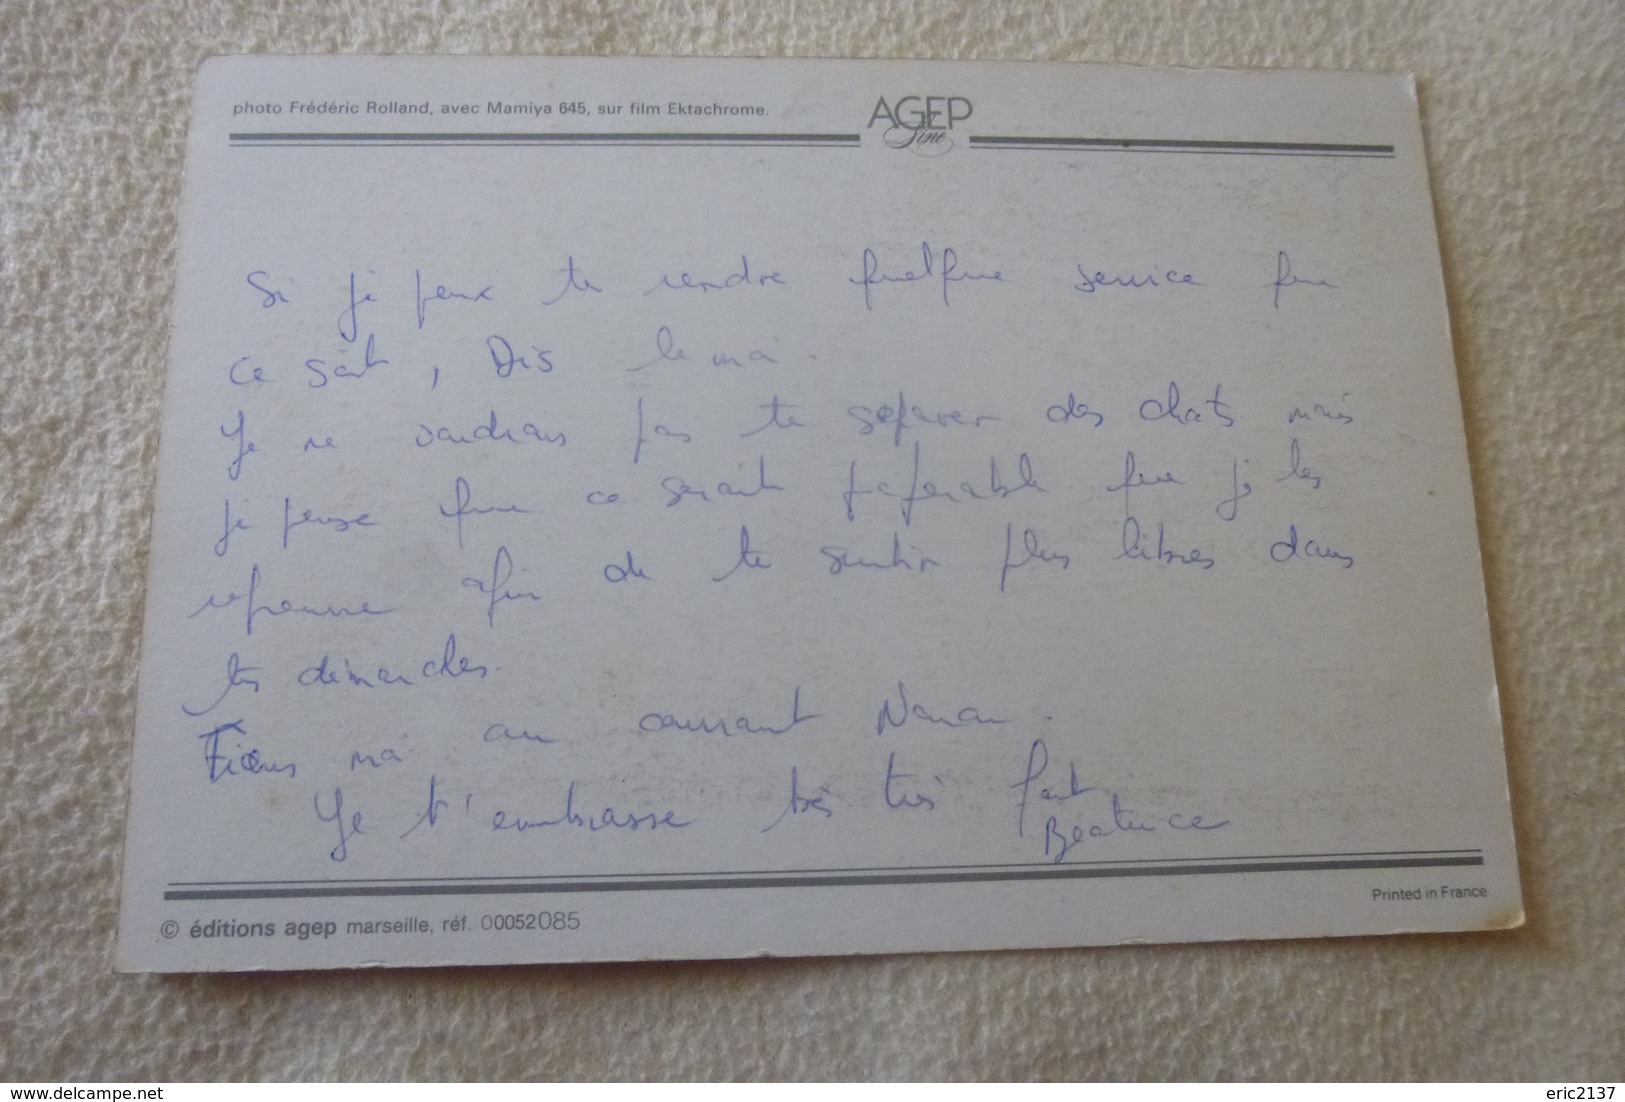 photo Frédéric Rolland, avec Mamiya 645, sur film Ektachrome.
AGEP
Line
Si je peux te rendre quelque service que
ce soit, Dis le moi.
Je ne voudrais pas te séparer des chats mais
je pense que ce serait préférable que je les
reprenne afin de te sentir plus libres dans
tes démarches.
Tiens moi au courrant Nanou.
Je t'embrasse très très fort
Béatrice
Printed in France
© éditions agep marseille, réf. 00052085
delcampe.net
eric2137